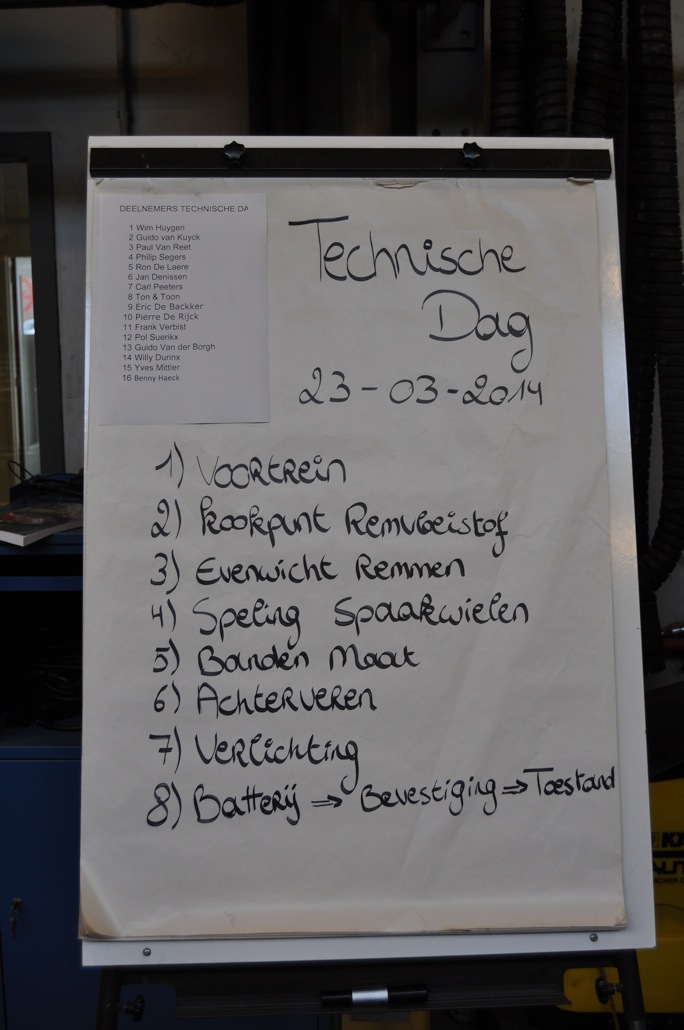 DEELNEMERS TECHNISCHE DA
1 Wim Huygen
2 Guido van Kuyck
3 Paul Van Reet
4 Philip Segers
5 Ron De Laere
6 Jan Denissen
7 Carl Peeters
8 Ton & Toon
9 Eric De Backker
10 Pierre De Rijck
11 Frank Verbist
12 Pol Suerikx
13 Guido Van der Borgh
14 Willy Durinx
15 Yves Mittler
16 Benny Haeck
Technische
Dag
23-03-2014
1) Voortrein
2) kookpunt Remvloeistof
3) Evenwicht Remmen
4) Speling Spaakwielen
5) Banden Maat
6) Achterveren
7) Verlichting
8) Batterij ⇒ Bevestiging ⇒ Toestand